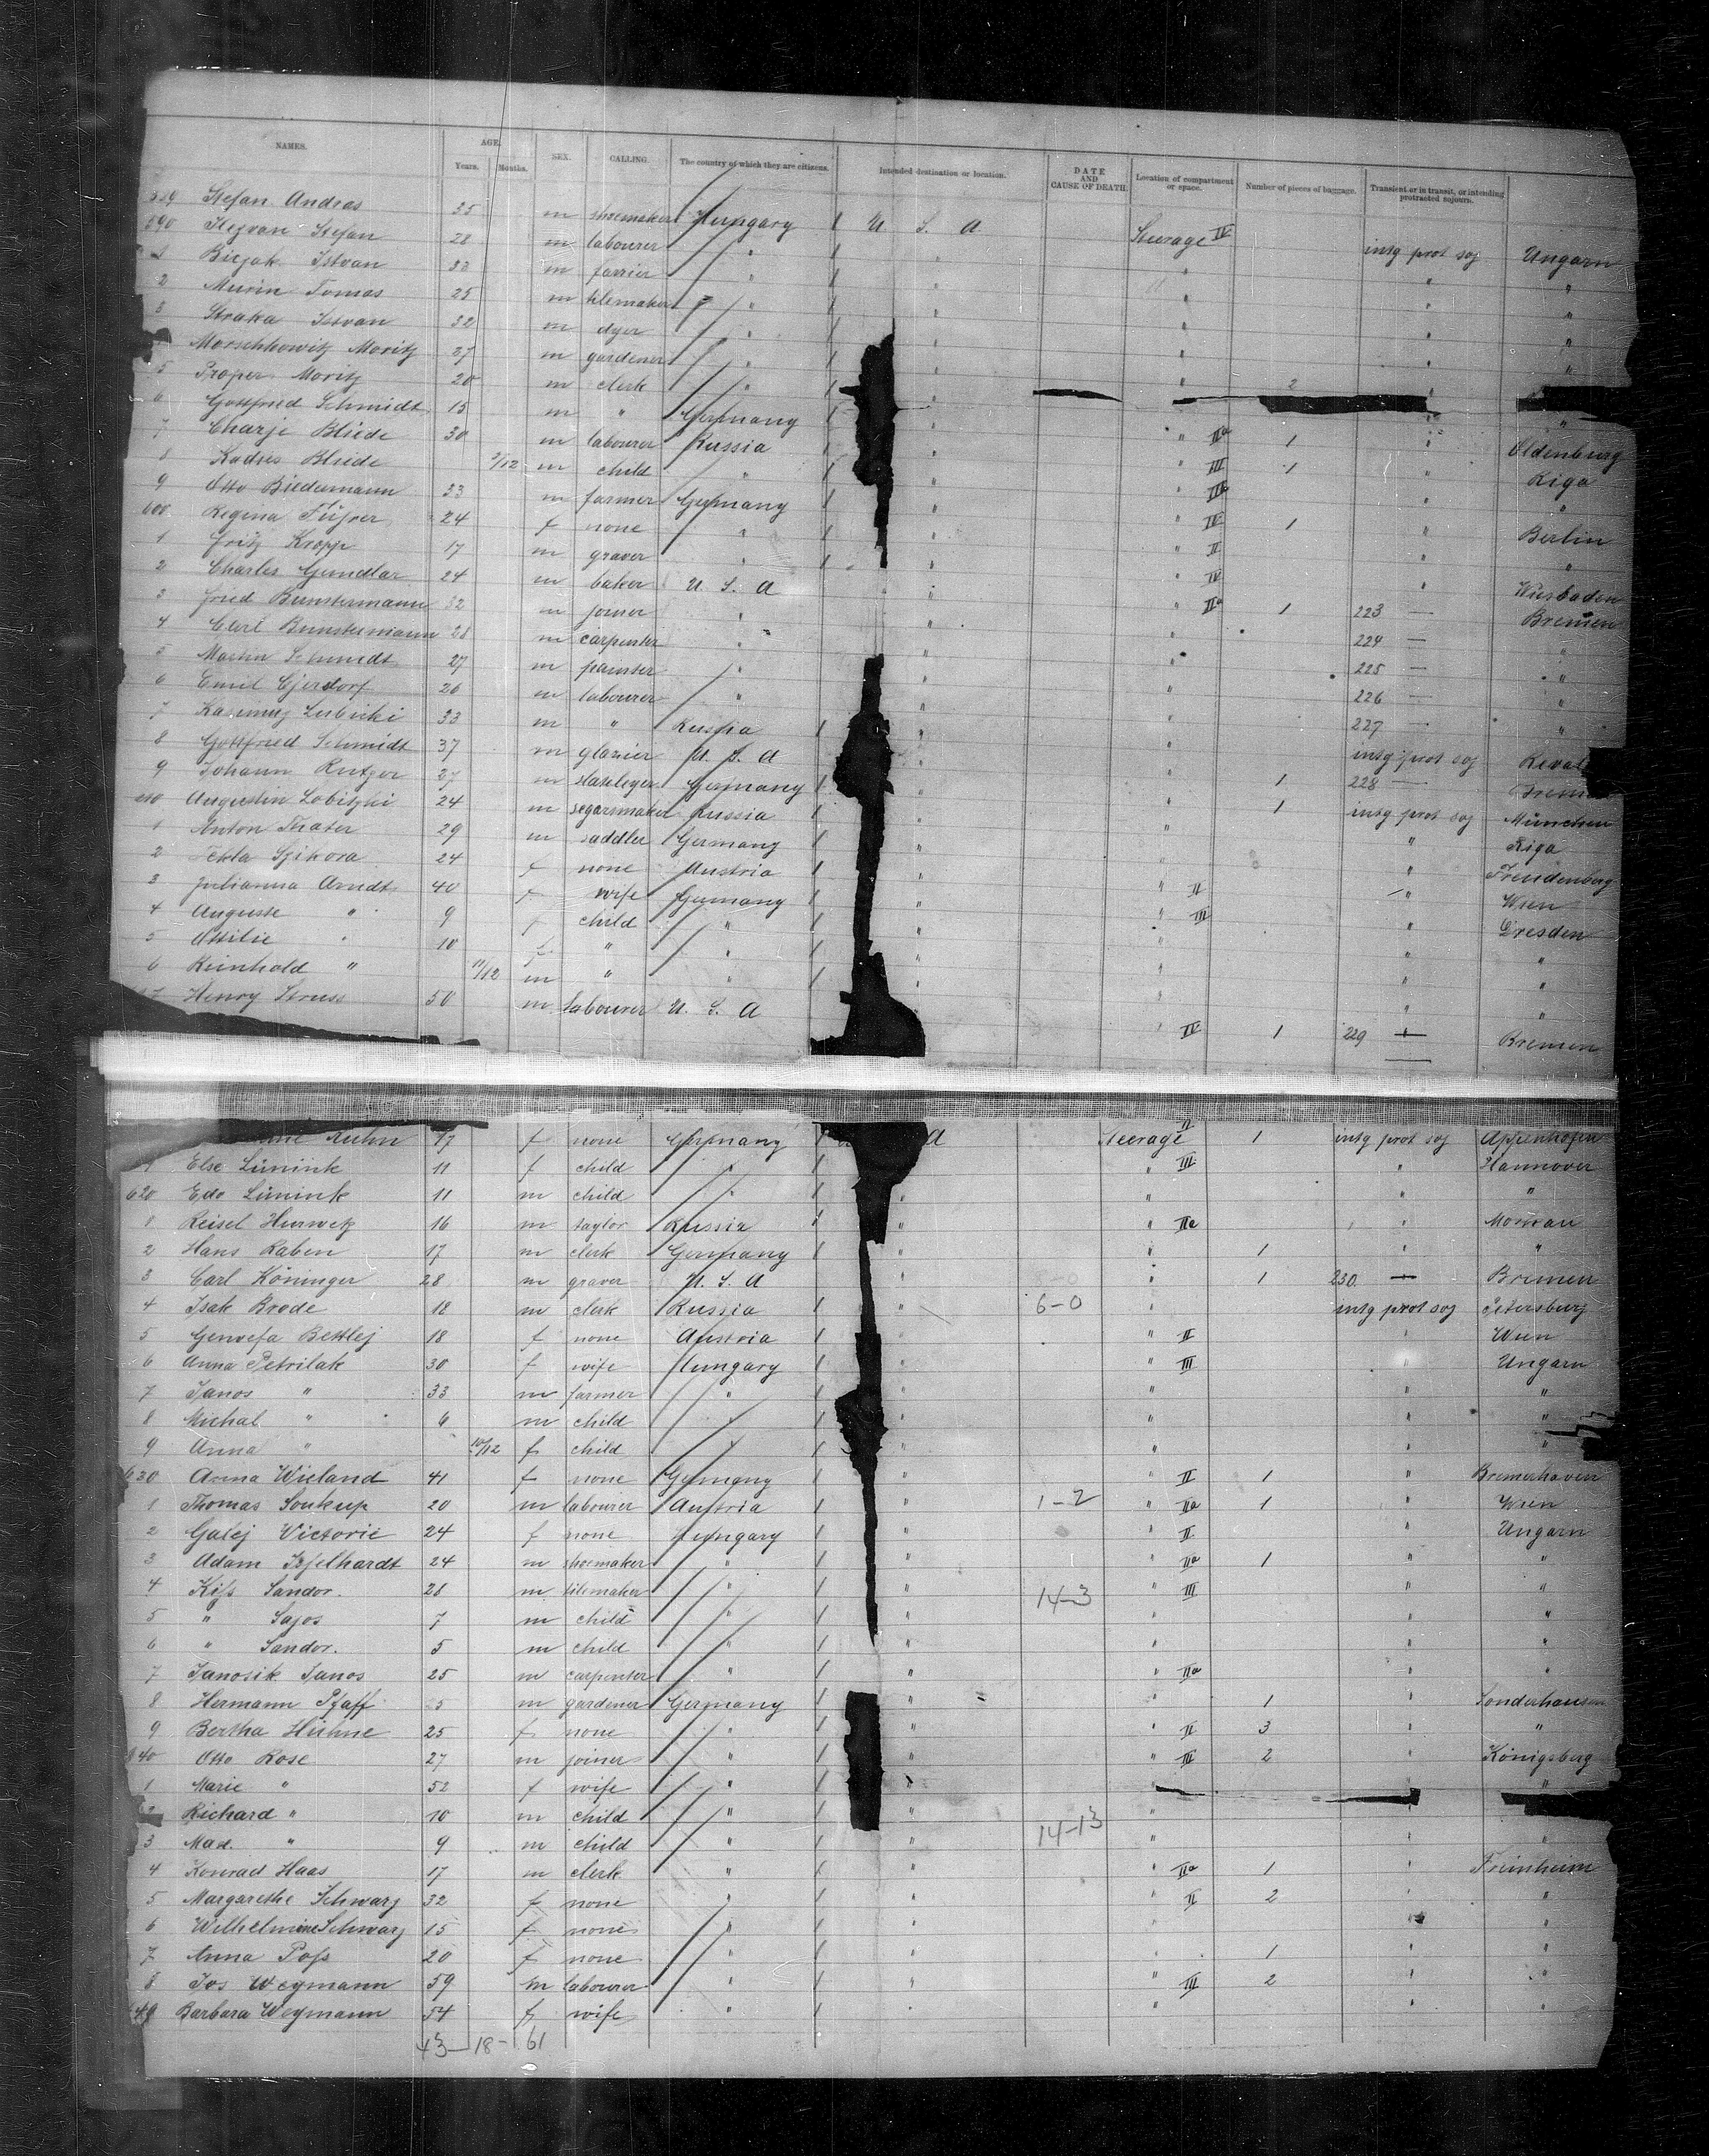 NAMES. AGE. Years. Months. SEX. CALLING. The country of which they are citizens. Intended destination or location. DATE AND CAUSE OF DEATH. Location of compartment or space. Number of pieces of baggage. Transient or in transit, or intending protracted sojourn.
589 Stefan Andras 35 m shoemaker Hungary 1 U. S. A Steerage IV intg prot soj Ungarn
590 Stefan 28 m labourer " 1 " " " "
1 Istvan 33 m farrier " 1 " " " "
2 Murin Tomas 25 m tilemaker " 1 " " " "
3 Straka Istvan 32 m dyer " 1 " " " "
Morschkowitz Moritz 27 m gardener " " "
5 Proper Moritz 20 m clerk " 1 " " 2
6 Gottfried Schmidt 15 m " Germany " " IIa 1 " Oldenburg
7 Charje Bliede 30 m labourer Russia 1 " " III 1 " Riga
8 Kadres Bliede m child " 1 " " " "
9 Otto Biedermann 33 m farmer Germany 1 " " IV 1 " Berlin
600 Regina 24 f none " 1 " " II " "
1 Fritz Kropp 17 m graver " 1 " " IV " Wiesbaden
2 Charles Gundlar 24 m baker U. S. A " " IIa 1 223 — Bremen
3 Fred Bunstermann 32 m joiner " " " 224 — "
4 Carl Bunstermann 28 m carpenter " " " 225 — "
5 Martin Schmidt 27 m painter " " " 226 — "
6 Emil 26 m labourer " " " 227 — "
7 Lubicki 33 m " Russia 1 " " intg prot soj Reval
8 Gottfried Schmidt 37 m glazier U. S. A " " 1 228 — Bremen
9 Johann Rutger 27 m Germany 1 " " 1 intg prot soj München
610 Augustin Lobitzki 24 m segarsmaker Russia 1 " " " Riga
1 Anton Thater 29 m saddler Germany 1 " " " Freudenberg
2 Tekla Sjikora 24 f none Austria 1 " " II " Wien
3 Julianna Arndt 40 f wife Germany 1 " " III " Dresden
4 Auguste " 9 f child " 1 " " " "
5 Ottilie " 10 f " " 1 " " " "
6 Reinhold " 11/12 m " " 1 " " " "
7 Henry Struss 50 m labourer U. S. A " IV 1 229 — Bremen
Kuhn 17 f none Germany 1 A Steerage II 1 intg prot soj Appenhofen
Else Lünink 11 f child " 1 " III " Hannover
620 Edo Lünink 11 m child " 1 " " " "
1 Reisel Hurwetz 16 m taylor Russia 1 " " IIa "
2 Hans Raben 17 m clerk Germany 1 " " 1 " "
3 Carl Köninger 28 m graver U. S. A " " 1 230 — Bremen
4 Isak Brode 18 m clerk Russia 1 " 6-0 " intg prot soj Petersburg
5 Genvefa Bettlej 18 f none Austria 1 " " II " Wien
6 Anna Petrilak 30 f wife Hungary 1 " " III " Ungarn
7 Janos " 33 m farmer " 1 " " " "
8 Michal " 6 m child " 1 " " " "
9 Anna " 10/12 f child " 1 " " " "
630 Anna Wieland 41 f none Germany 1 " " II 1 " Bremerhaven
1 Thomas Soukup 20 m labourer Austria 1 " 1-2 " IIa 1 " Wien
2 Galej Victorie 24 f none Hungary 1 " " II " Ungarn
3 Adam 24 m shoemaker " 1 " " IIa 1 " "
4 Kiss Sandor. 28 m tilemaker " 1 " 14-3 " III " "
5 " Sajos 7 m child " 1 " " " "
6 " Sandor. 5 m child " 1 " " " "
7 Janosik Janos 25 m carpenter " 1 " " IIa " "
8 Hermann Pfaff m gardener Germany 1 " " 1 " Sonderhausen
9 Bertha Hühne 25 f none " 1 " " II 3 " "
640 Otto Rose 27 m joiner " 1 " " III 2 " Königsberg
1 Marie " 52 f wife " 1 " " "
2 Richard " 10 m child " 1 " " "
3 Mad. " 9 m child " 1 " 14-13 " " "
4 Konrad Haas 17 m clerk " 1 " " IIa 1 " Freinheim
5 Margarethe Schwarz 32 f none " 1 " " II 2 " "
6 Wilhelmine Schwarz 15 f none " 1 " " " "
7 Anna Poss 20 f none " 1 " " 1 " "
8 Jos Weymann 59 m labourer " 1 " " III 2 " "
649 Barbara Weymann 54 f wife " 1 " " " "
43-18-61